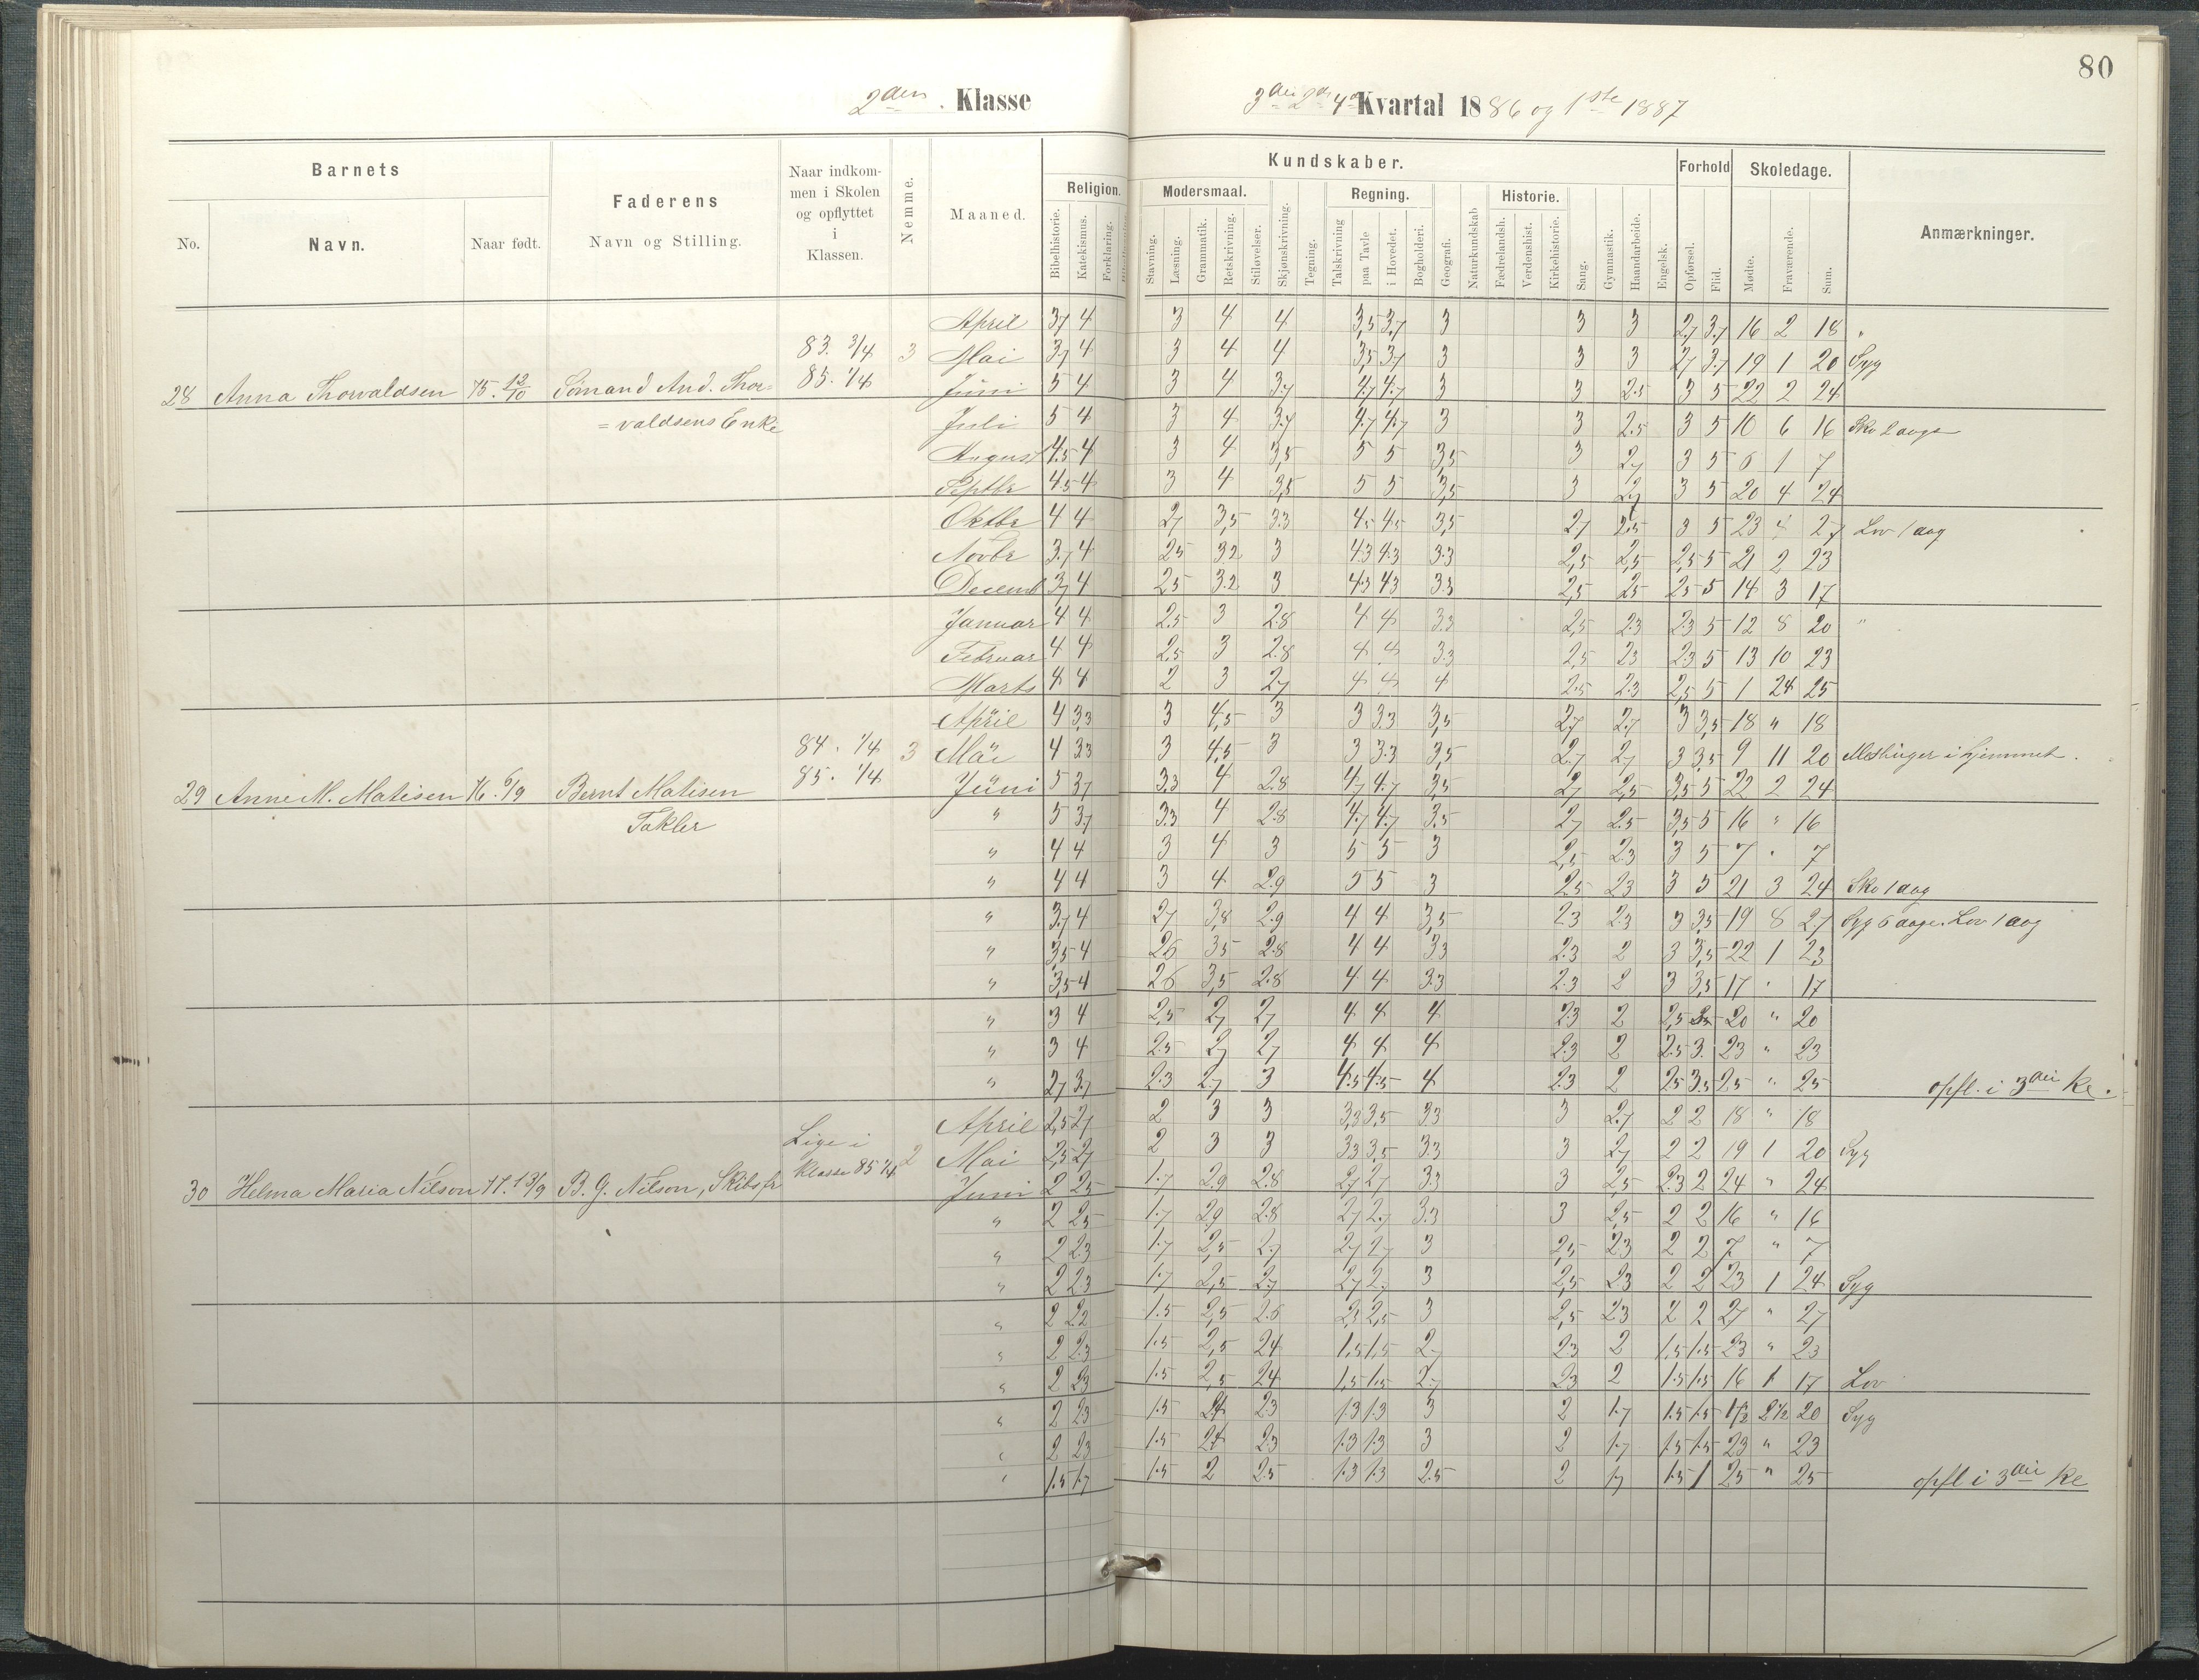 80
2den Klasse 3die 2de 4de Kvartal 1886 og 1ste 1887
Barnets
Faderens
Naar indkommen i Skolen og opflyttet i Klassen.
Nemme.
Maaned.
Kundskaber.
Forhold
Skoledage.
Anmærkninger.
No.
Navn.
Naar født.
Navn og Stilling.
Religion.
Modersmaal.
Regning.
Historie.
Bibelhistorie. Katekismus. Forklaring. Stavning. Læsning. Grammatik. Retskrivning. Stiløvelser. Skjønskrivning. Tegning. Talskrivning paa Tavle i Hovedet. Bogholderi. Geografi. Naturkundskab Fædrelandsh. Verdenshist. Kirkehistorie. Sang. Gymnastik. Haandarbeide. Engelsk. Opførsel. Flid. Mødte. Fraværende. Sum.
April 3,7 4 3 4 4 3,5 3,7 3 3 3 2,7 3,7 16 2 18 "
83. 3/4 3 Mai 3,7 4 3 4 4 3,5 3,7 3 3 3 2,7 3,7 19 1 20 Syg
28 Anna Thorvaldsen 75. 12/10 Sømand And. Thor= 85. 1/4 Juni 5 4 3 4 3,7 4,7 4,7 3 3 2.5 3 5 22 2 24
=valdsens Enke Juli 5 4 3 4 3,7 4,7 4,7 3 3 2.5 3 5 10 6 16 Sko 2 dage
August 4.5 4 3 4 3,5 5 5 3,5 3 2,7 3 5 6 1 7
Septbr 4.5 4 3 4 3,5 5 5 3,5 3 2,7 3 5 20 4 24
Oktbr 4 4 2,7 3,5 3.3 4,5 4,5 3,5 2,7 2,5 3 5 23 4 27 Lov 1 dag
Novbr 3,7 4 2.5 3.2 3 4.3 4.3 3.3 2,5 2,5 2,5 5 21 2 23
Decemb 3,7 4 2.5 3.2 3 4.3 4.3 3.3 2,5 2.5 2.5 5 14 3 17
Januar 4 4 2.5 3 2.8 4 4 3.3 2,5 2.3 2.3 5 12 8 20 "
Februar 4 4 2,5 3 2.8 4 4 3.3 2,5 2.3 2.3 5 13 10 23
Marts 4 4 2 3 2,7 4 4 4 2.5 2.3 2,5 5 1 24 25
April 4 3,3 3 4,5 3 3 3.3 3,5 2,7 2,7 3 3,5 18 " 18
84. 1/4 3 Mai 4 3.3 3 4,5 3 3 3.3 3,5 2,7 2,7 3 3.5 9 11 20 Meslinger i hjemmet.
29 Anne M. Matisen 76. 6/9 Bernt Matisen 85. 1/4 Juni 5 3,7 3.3 4 2.8 4,7 4,7 3,5 2,7 2,5 3,5 5 22 2 24
Takler " 5 3,7 3.3 4 2.8 4,7 4,7 3.5 2,7 2.5 3,5 5 16 " 16
" 4 4 3 4 3 5 5 3 2,5 2.3 3 5 7 " 7
" 4 4 3 4 2.9 5 5 3 2.5 2.3 3 5 21 3 24 Sko 1 dag
" 3,7 4 2,7 3,8 2.9 4 4 3,5 2.3 2.3 3 3,5 19 8 27 Syg 6 dage. Lov 1 dag
" 3,5 4 2.6 3.5 2.8 4 4 3.3 2.3 2 3 3,5 22 1 23
" 3,5 4 2.6 3,5 2.8 4 4 3.3 2.3 2 3 3,5 17 " 17
" 3 4 2,5 2,7 2,7 4 4 4 2.3 2 2,5 20 " 20
" 3 4 2.5 2,7 2,7 4 4 4 2.3 2 2.5 3. 23 " 23
" 2,7 3,7 2.3 2,7 3 4.5 4.5 4 2.3 2 2.5 3.5 25 " 25 opfl. i 3die Kl.
April 2,5 2,7 2 3 3 3,3 3,5 3.3 3 2,7 2 2 18 " 18
Lige i 2 Mai 2,5 2,7 2 3 3 3.3 3.5 3.3 3 2,7 2 2 19 1 20 Syg
30 Helma Maria Nilson 77. 13/9 B. G. Nilson, Skibsfr Klasse 85 1/4 Juni 2 2.5 1.7 2.9 2.8 2,7 2,7 3.3 3 2,5 2.3 2 24 " 24
" 2 2.5 1.7 2.9 2.8 2,7 2,7 3.3 3 2,5 2 2 16 " 16
" 2 2.3 1.7 2,5 2.7 2,7 2,7 3 2,5 2.3 2 2 7 " 7
" 2 2.3 1.7 2,5 2,7 2,7 2,7 3 2,5 2.3 2 2 23 1 24 Syg
" 2 2.2 1.5 2,5 2.6 2.3 2,5 3 2,5 2.3 2 2 27 " 27
" 2 2.3 1.5 2,5 2.4 1,5 1,5 2,7 2.3 2 1,5 1.5 23 " 23
" 2 2.3 1.5 2,5 2.4 1,5 1.5 2,7 2.3 2 1.5 1.5 16 1 17 Lov
" 2 2.3 1.5 2.4 2.3 1.3 1.3 3 2 1.7 1.5 1.5 2 1/2 20 Syg
" 2 2.3 1.5 2.4 2.3 1.3 1.3 3 2 1.7 1.5 1.5 23 " 23
" 1.5 1.7 1.5 2 2.5 1.3 1.3 2.5 2 1.7 1.5 1 25 " 25 opfl i 3die Kl